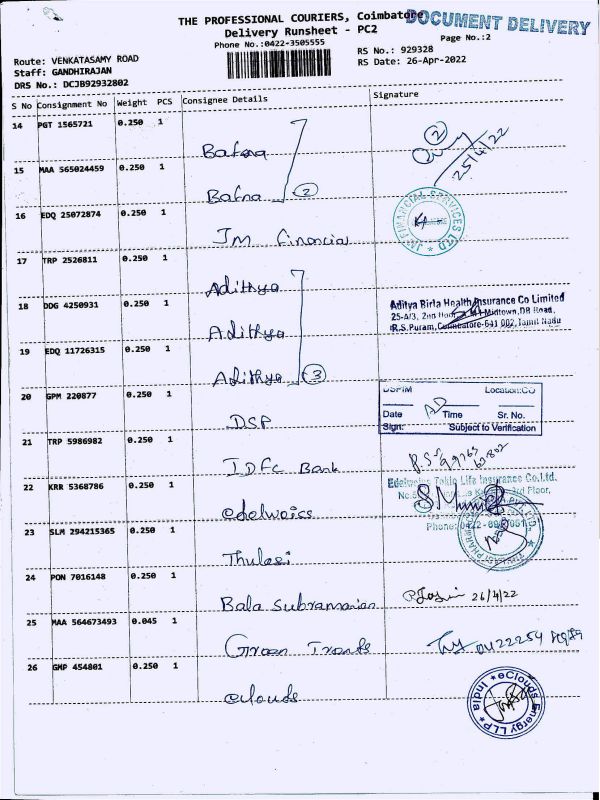 THE PROFESSIONAL COURIERS, Coimbatore
DOCUMENT DELIVERY
Delivery Runsheet - PC2
Phone No.:0422-3505555
Page No.:2
Route: VENKATASAMY ROAD
RS No.: 929328
Staff: GANDHIRAJAN
RS Date: 26-Apr-2022
DRS No.: DCJB92932802
S No Consignment No Weight PCS Consignee Details Signature
14 PGT 1565721 0.250 1 Bafna
2
25/4/22
15 MAA 565024459 0.250 1 Bafna 2
16 EDQ 25072874 0.250 1 JM Financial
JM FINANCIAL SERVICES LTD
17 TRP 2526811 0.250 1 Adithya
18 DDG 4250931 0.250 1 Adithya
Aditya Birla Health Insurance Co Limited
25-A/3, 2nd Midtown, DB Road,
R.S.Puram, Coimbatore-641 002, Tamil Nadu
19 EDQ 11726315 0.250 1 Adithya 3
20 GPM 220877 0.250 1 DSP
DSPIM Location:CO
Date Time Sr. No.
Sign: Subject to Verification
21 TRP 5986982 0.250 1 IDFC Bank
22 KRR 5368786 0.250 1 edelweiss
Edelweiss Tokio Life Insurance Co.Ltd.
3rd Floor,
Phone: 0422
23 SLM 294215365 0.250 1 Thulasi
24 PON 7016148 0.250 1 Bala Subramanian
26/4/22
25 MAA 564673493 0.045 1 Green Trends
26 GMP 454801 0.250 1 eclouds
eClouds Energy LLP * India *